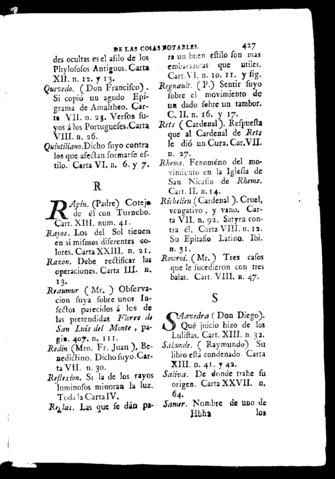 DE LAS COSAS NOTABLES. 427
des ocultas es el asilo de los
Phylosofos Antiguos. Carta
XII. n. 12. y 13.
Quevedo. (Don Francisco).
Si copió un agudo Epi-
grama de Amaltheo. Car-
ta VII. n. 23. Versos su-
yos á los Portugueses. Carta
VIII. n. 26.
Quintiliano. Dicho suyo contra
los que afectan formarse es-
tilo. Carta VI. n. 6. y 7.
R
RApin. (Padre) Cotejo
de él con Turnebo.
Cart. XIII. num. 41.
Rayos. Los del Sol tienen
en sí mismos diferentes co-
lores. Carta XXIII. n. 21.
Razon. Debe rectificar las
operaciones. Carta III. n.
13.
Reaumur (Mr.) Observa-
cion suya sobre unos In-
sectos parecidos á los de
las pretendidas Flores de
San Luis del Monte, pa-
gin. 407. n. 111.
Redin (Mro. Fr. Juan), Be-
nedictino. Dicho suyo. Car-
ta VII. n. 30.
Reflexion. Si la de los rayos
luminosos minoran la luz.
Toda la Carta IV.
Reglas. Las que se dán pa-
ra un buen estilo son mas
embarazosas que utiles.
Cart. VI. n. 10. 11. y sig.
Regnault. (P.) Sentir suyo
sobre el movimiento de
un dado sobre un tambor.
C. II. n. 16. y 17.
Rets (Cardenal). Respuesta
que al Cardenal de Rets
le dió un Cura. Car. VII.
n. 27.
Rhems. Fenoméno del mo-
vimiento en la Iglesia de
San Nicasio de Rhems.
Cart. II. n. 14.
Richelieu (Cardenal). Cruel,
vengativo, y vano. Car-
ta VII. n. 92. Satyra con-
tra él. Carta VIII. n. 12.
Su Epitafio Latino. Ibi.
n. 31.
(Mr.) Tres casos
que le sucedieron con tres
balas. Cart. VIII. n. 47.
S
SAavedra (Don Diego).
Qué juicio hizo de los
Lulistas. Cart. XIII. n. 32.
(Raymundo) Su
libro está condenado. Carta
XIII. n. 41. y 42.
Saliva. De donde trahe su
origen. Carta XXVII. n.
64.
Samer. Nombre de uno de
Hhh2 los